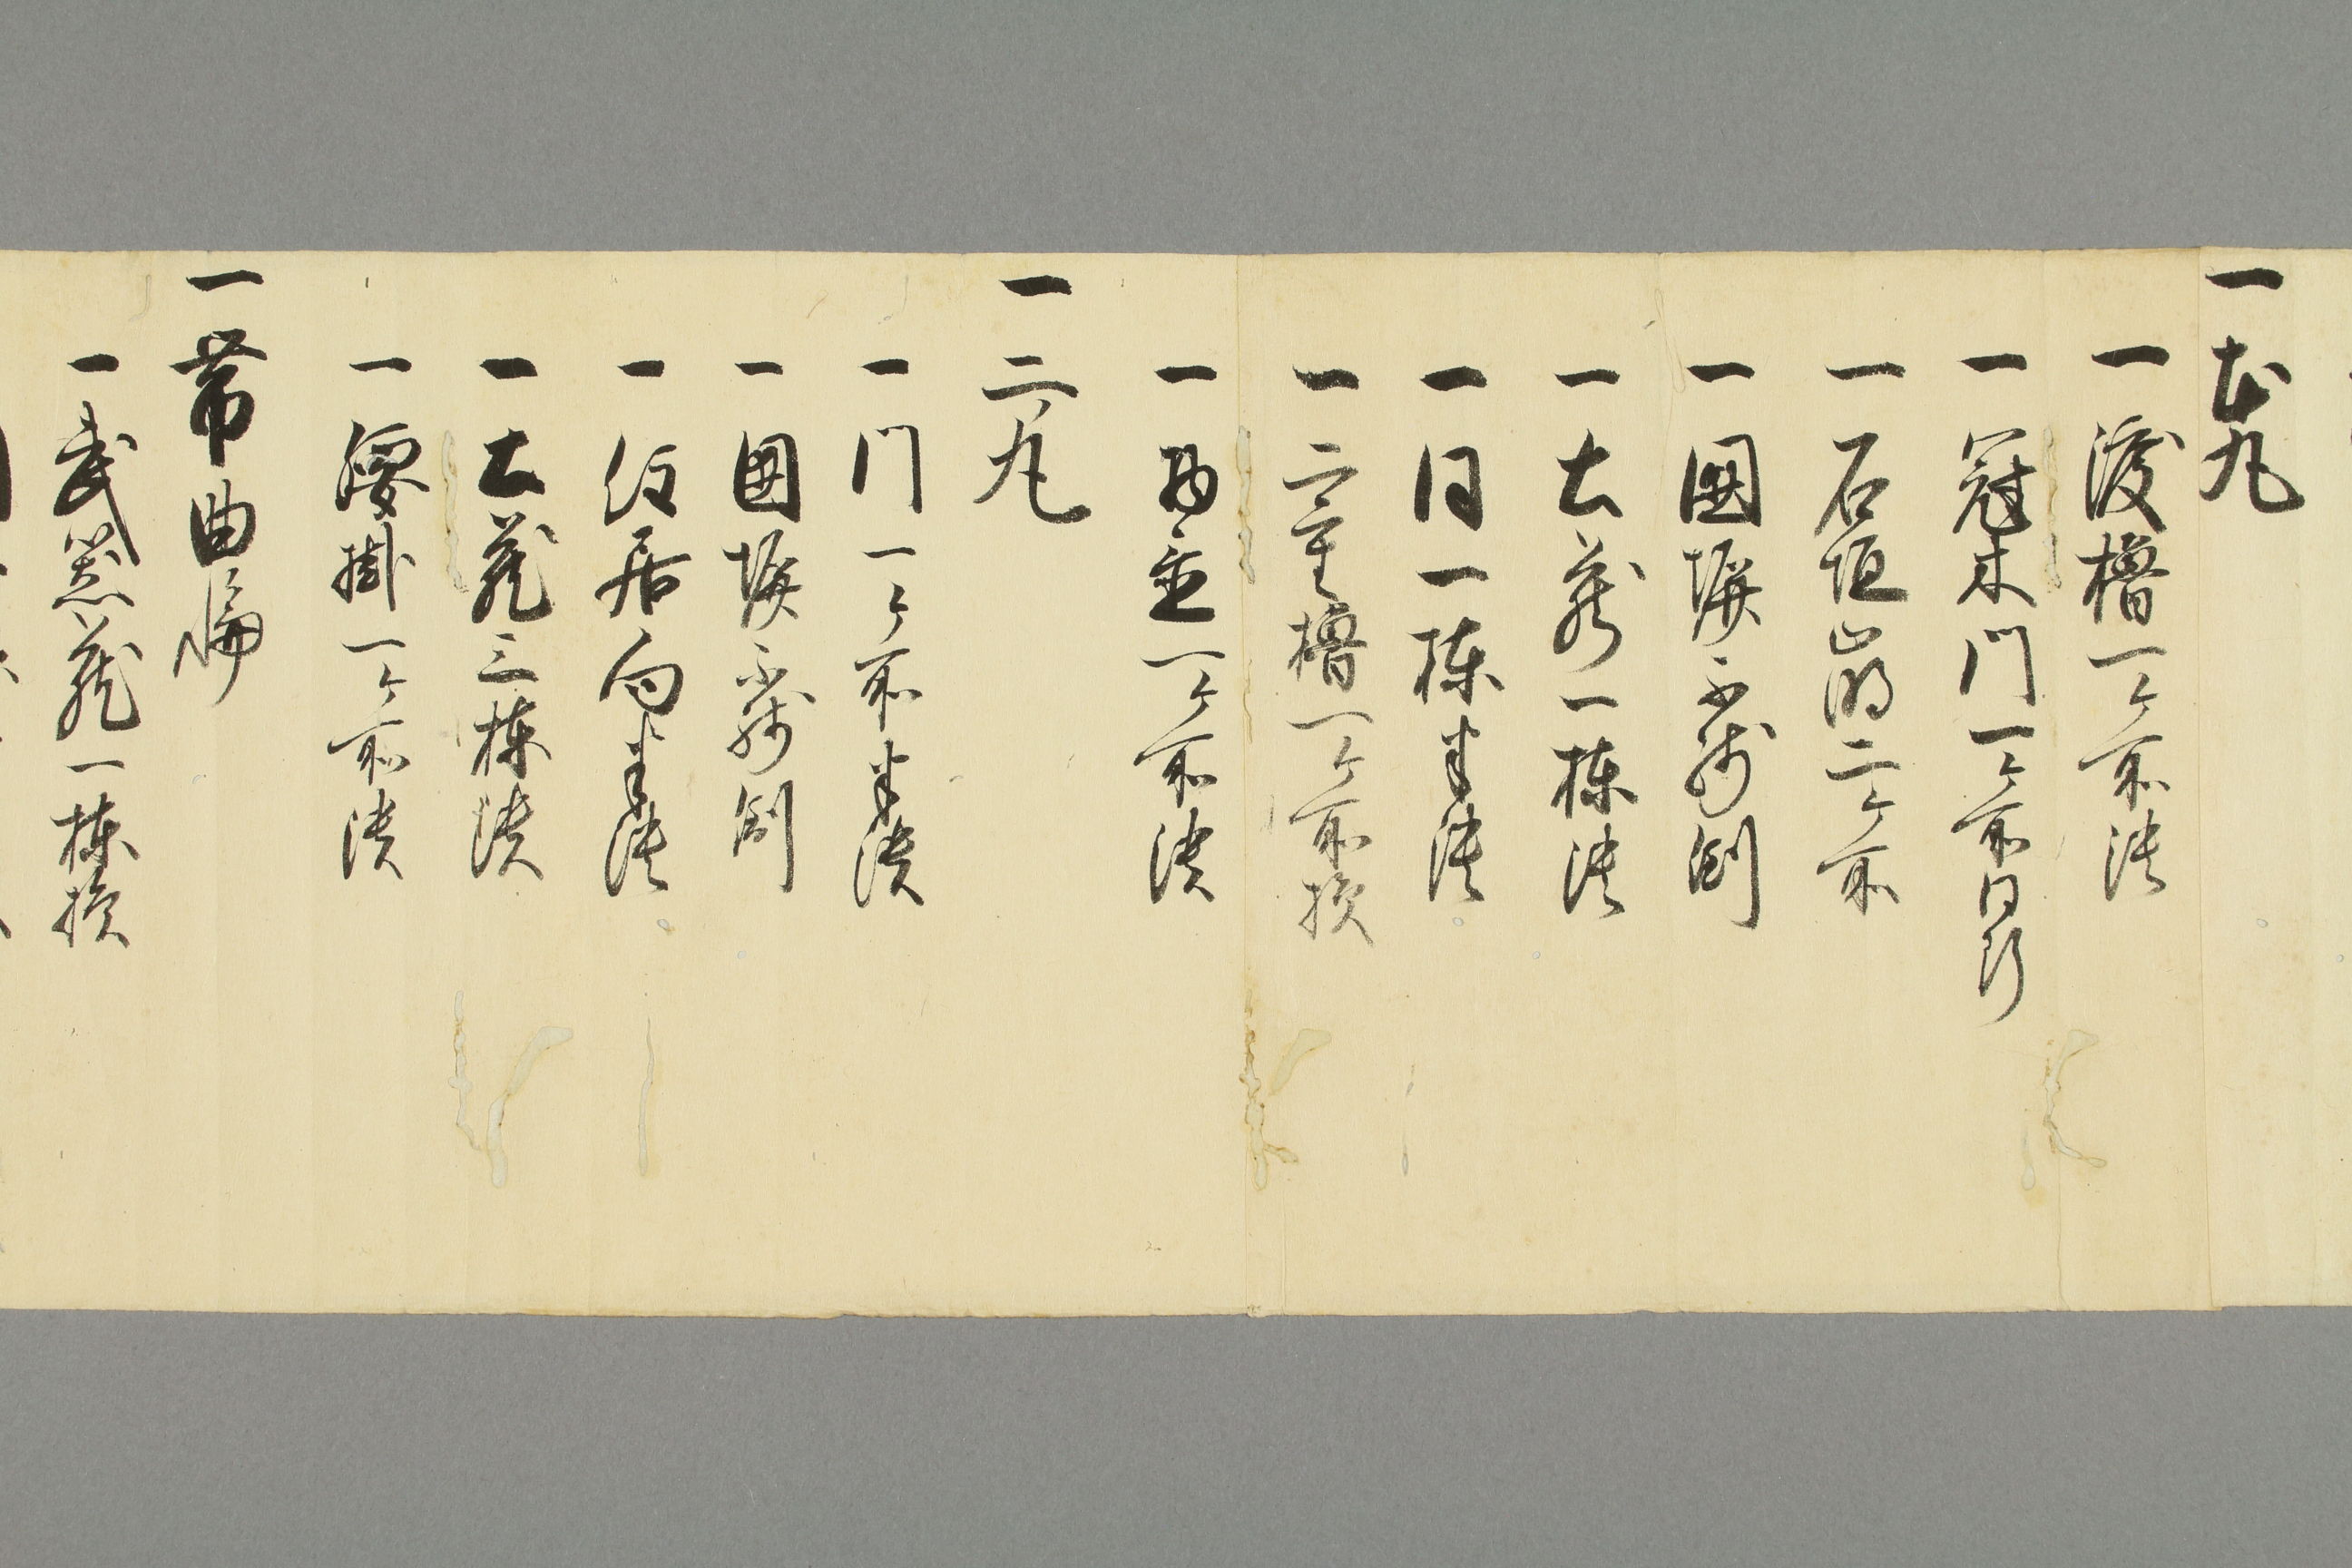 一本丸
一渡櫓一ヶ所潰
一冠木門一ヶ所同断
一石垣崩二ヶ所
一囲塀不残倒
一土蔵一棟潰
一同一棟半潰
一二重櫓一ヶ所損
一 一ヶ所潰
一二丸
一門一ヶ所半潰
一囲塀不残倒
一住居向半潰
一土蔵三棟潰
一腰掛一ヶ所潰
一帯曲輪
一武器蔵一棟損